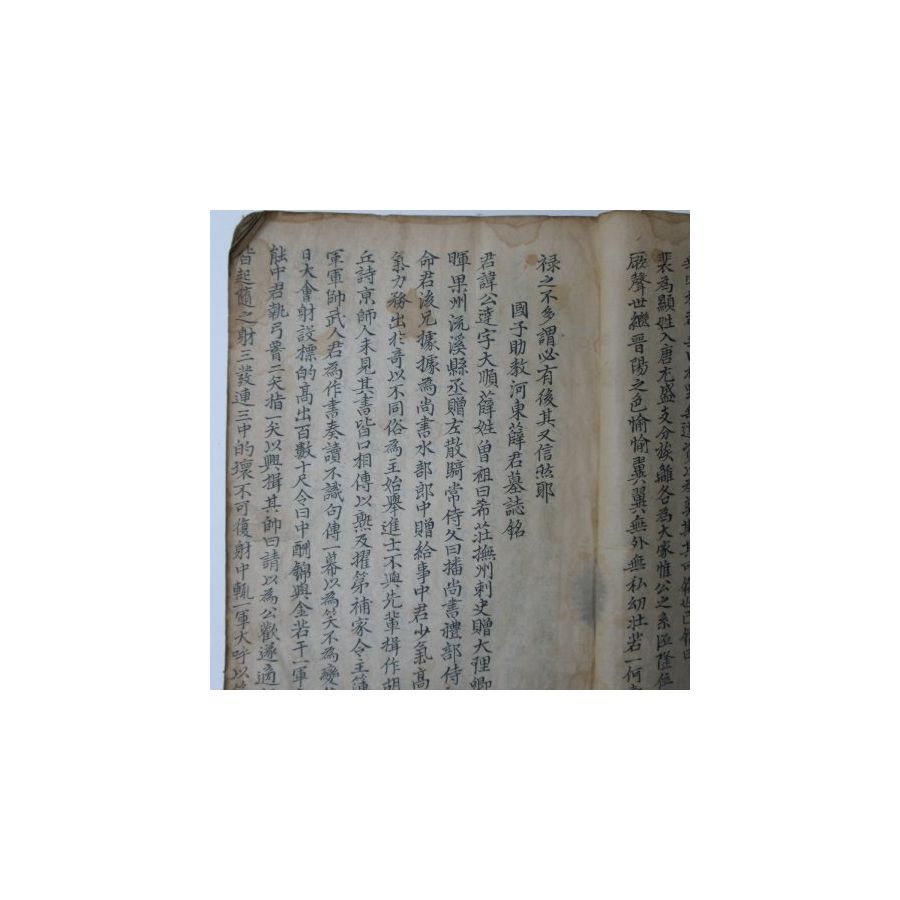 裴為顯姓入唐尤盛支分族離各為大家惟公之系區隆位
厥聲世繼晉陽之色愉愉翼翼無外無私幼壯若一何
祿之不多謂必有後其又信然耶
國子助教河東薛君墓誌銘
君諱公達字大順薛姓曾祖曰希莊撫州刺史贈大理卿
暉果州流溪縣丞贈左散騎常侍父曰播尚書禮部侍
命君後兄據據為尚書水部郎中贈給事中君少氣高
氣力務出於奇以不同俗為主始舉進士不與先輩揖作胡
丘詩京師人未見其書皆口相傳以熟及擢第補家令主簿
軍軍帥武人君為作書奏讀不識句傳一幕以為笑不為變
日大會射設標的高出百數十尺令曰中酬錦與金若干一軍
能中君執弓腰二矢指一矢以興揖其帥曰請以為公歡遂適
皆起隨之射三發連三中的壞不可復射中輒一軍大呼以